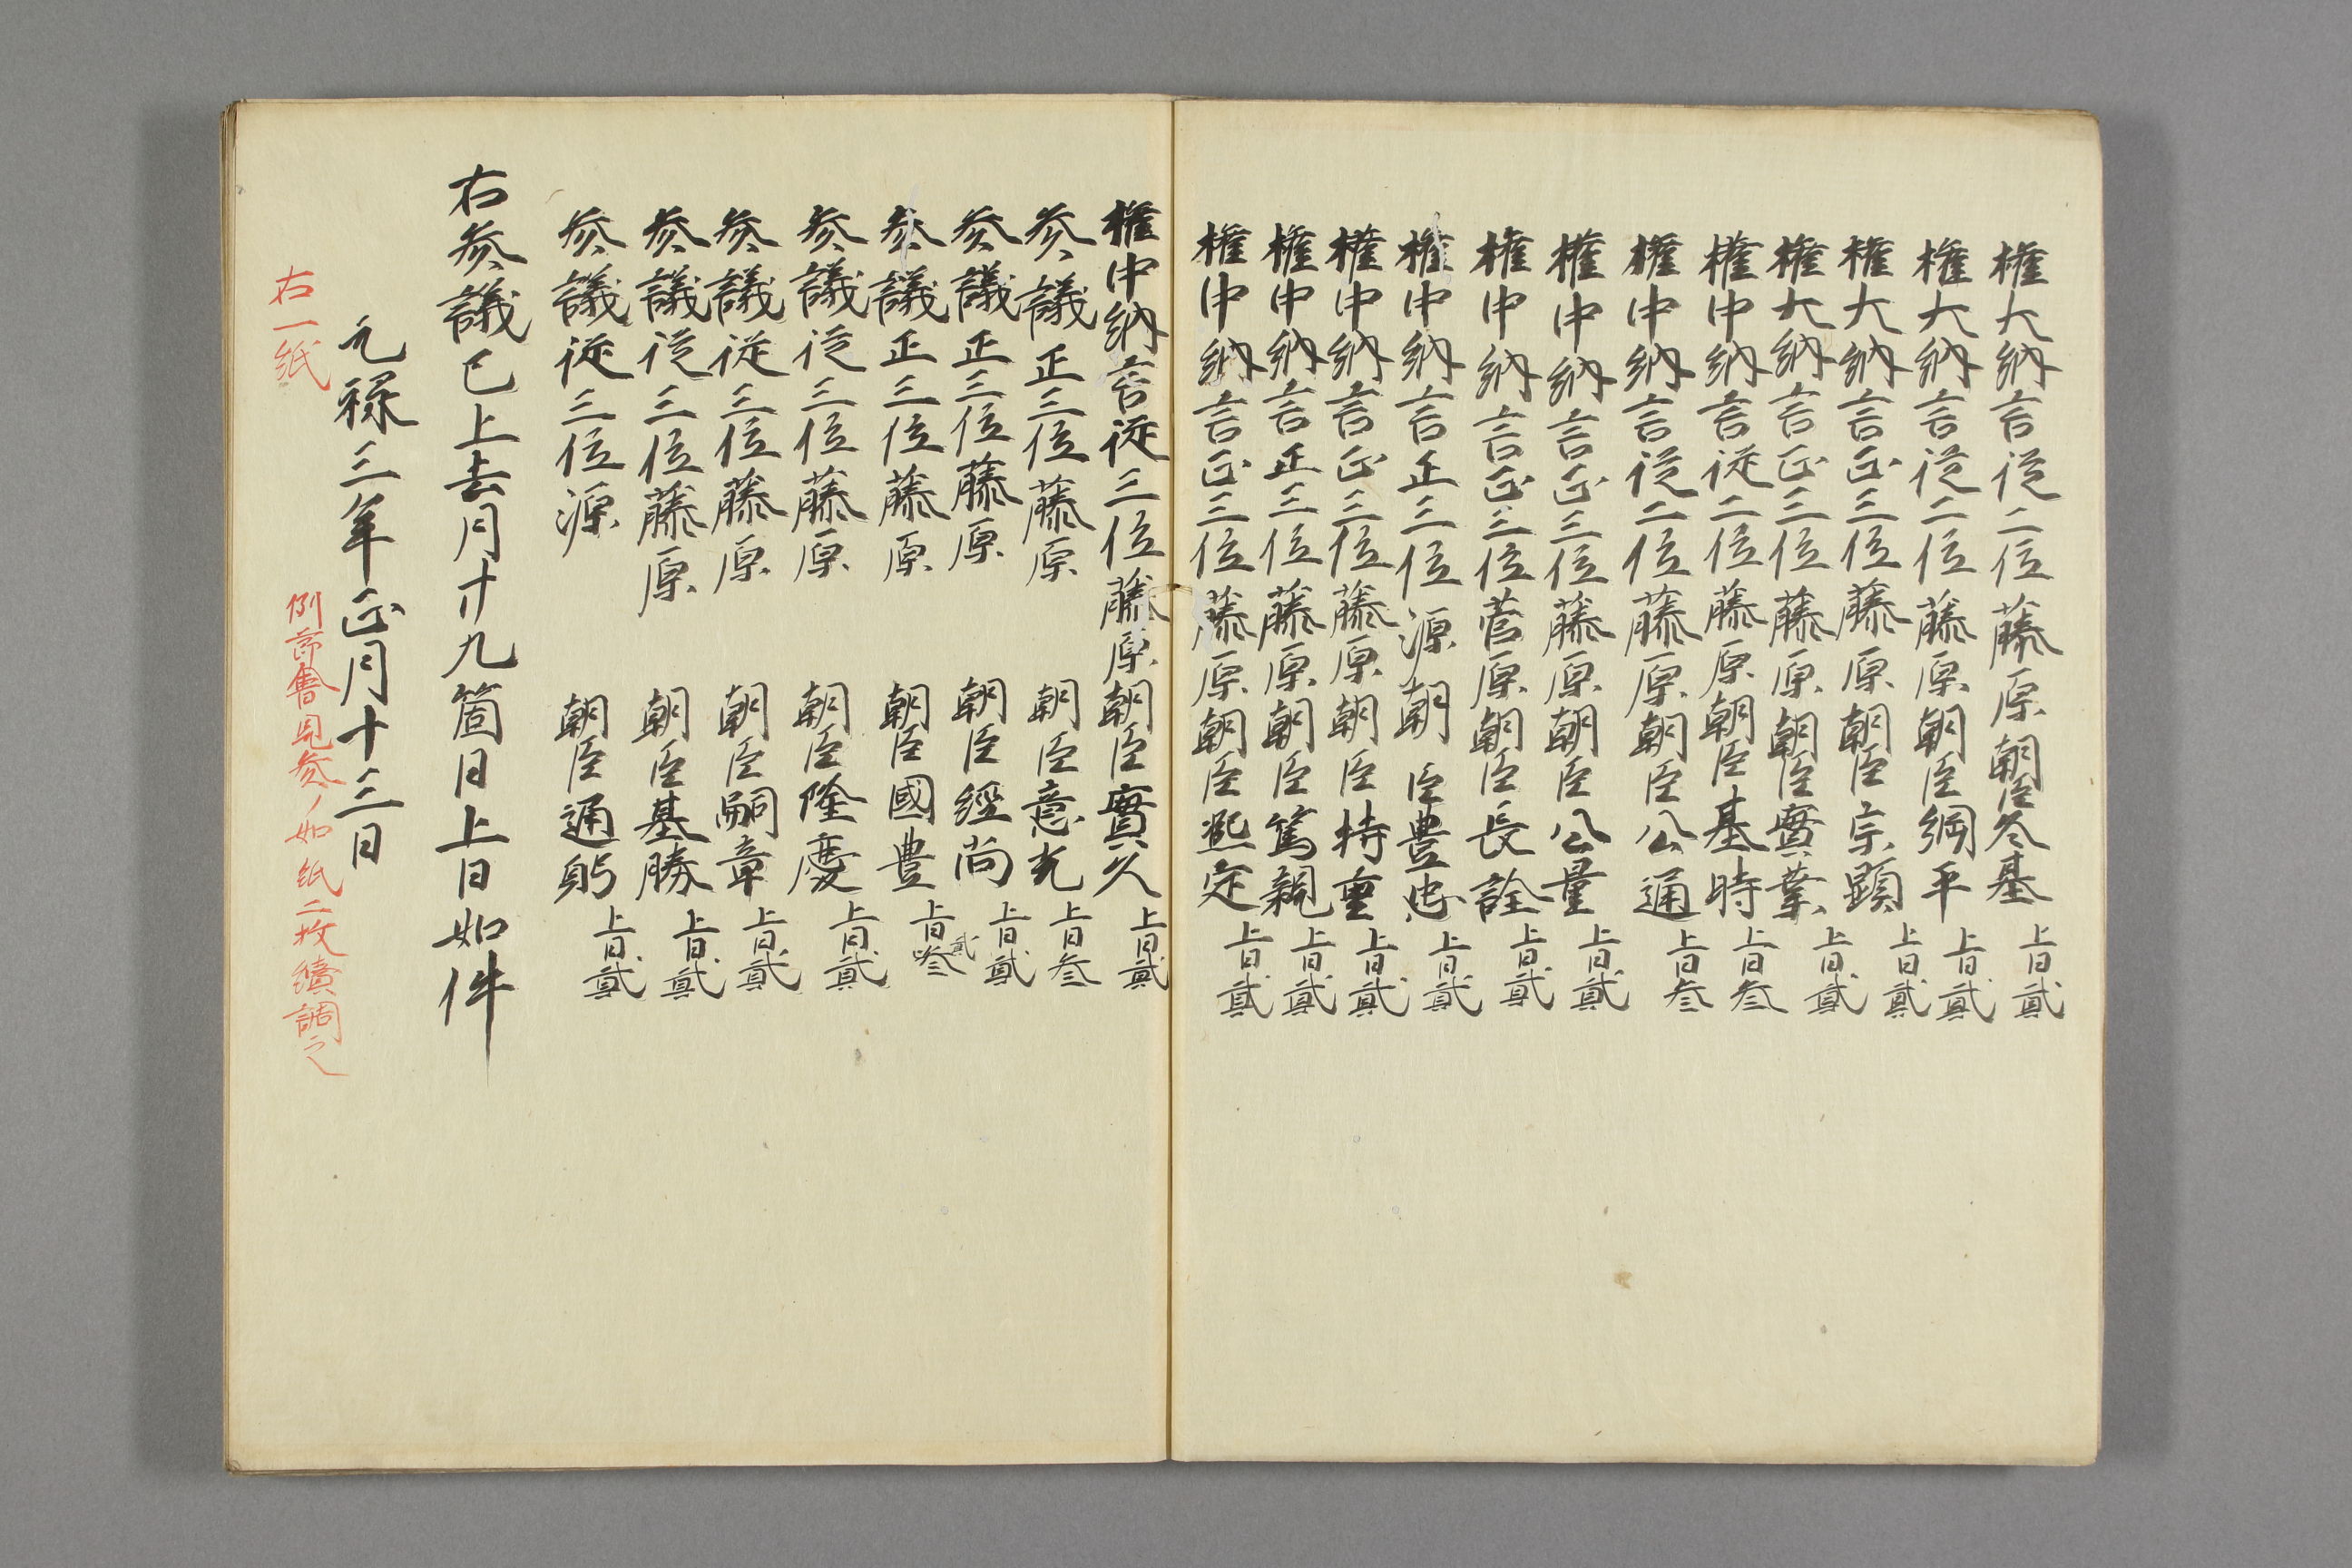 權大納言従二位藤原朝臣冬基上日貳
權大納言従二位藤原朝臣綱平上日貳
權大納言正三位藤原朝臣宗顕上日貳
權大納言正三位藤原朝臣實業上日貳
權中納言従二位藤原朝臣基時上日叁
權中納言従二位藤原朝臣公通上日叁
權中納言正三位藤原朝臣公量上日貳
權中納言正三位菅原朝臣長詮上日貳
權中納言正三位源朝臣豊忠上日貳
權中納言正三位藤原朝臣持重上日貳
權中納言正三位藤原朝臣篤親上日貳
權中納言正三位藤原朝臣熙定上日貳
權中納言従三位藤原朝臣實久上日貳
参議正三位藤原朝臣意光上日叁
参議正三位藤原朝臣經尚上日貳
参議正三位藤原朝臣國豊上日叁貳
参議従三位藤原朝臣隆慶上日貳
参議従三位藤原朝臣嗣章上日貳
参議従三位藤原朝臣基勝上日貳
参議従三位源朝臣通躬上日貳
右参議已上去月廿九箇日上日如件
元禄三年正月十三日
右一紙
例節會見参ノ如紙二枚續調之